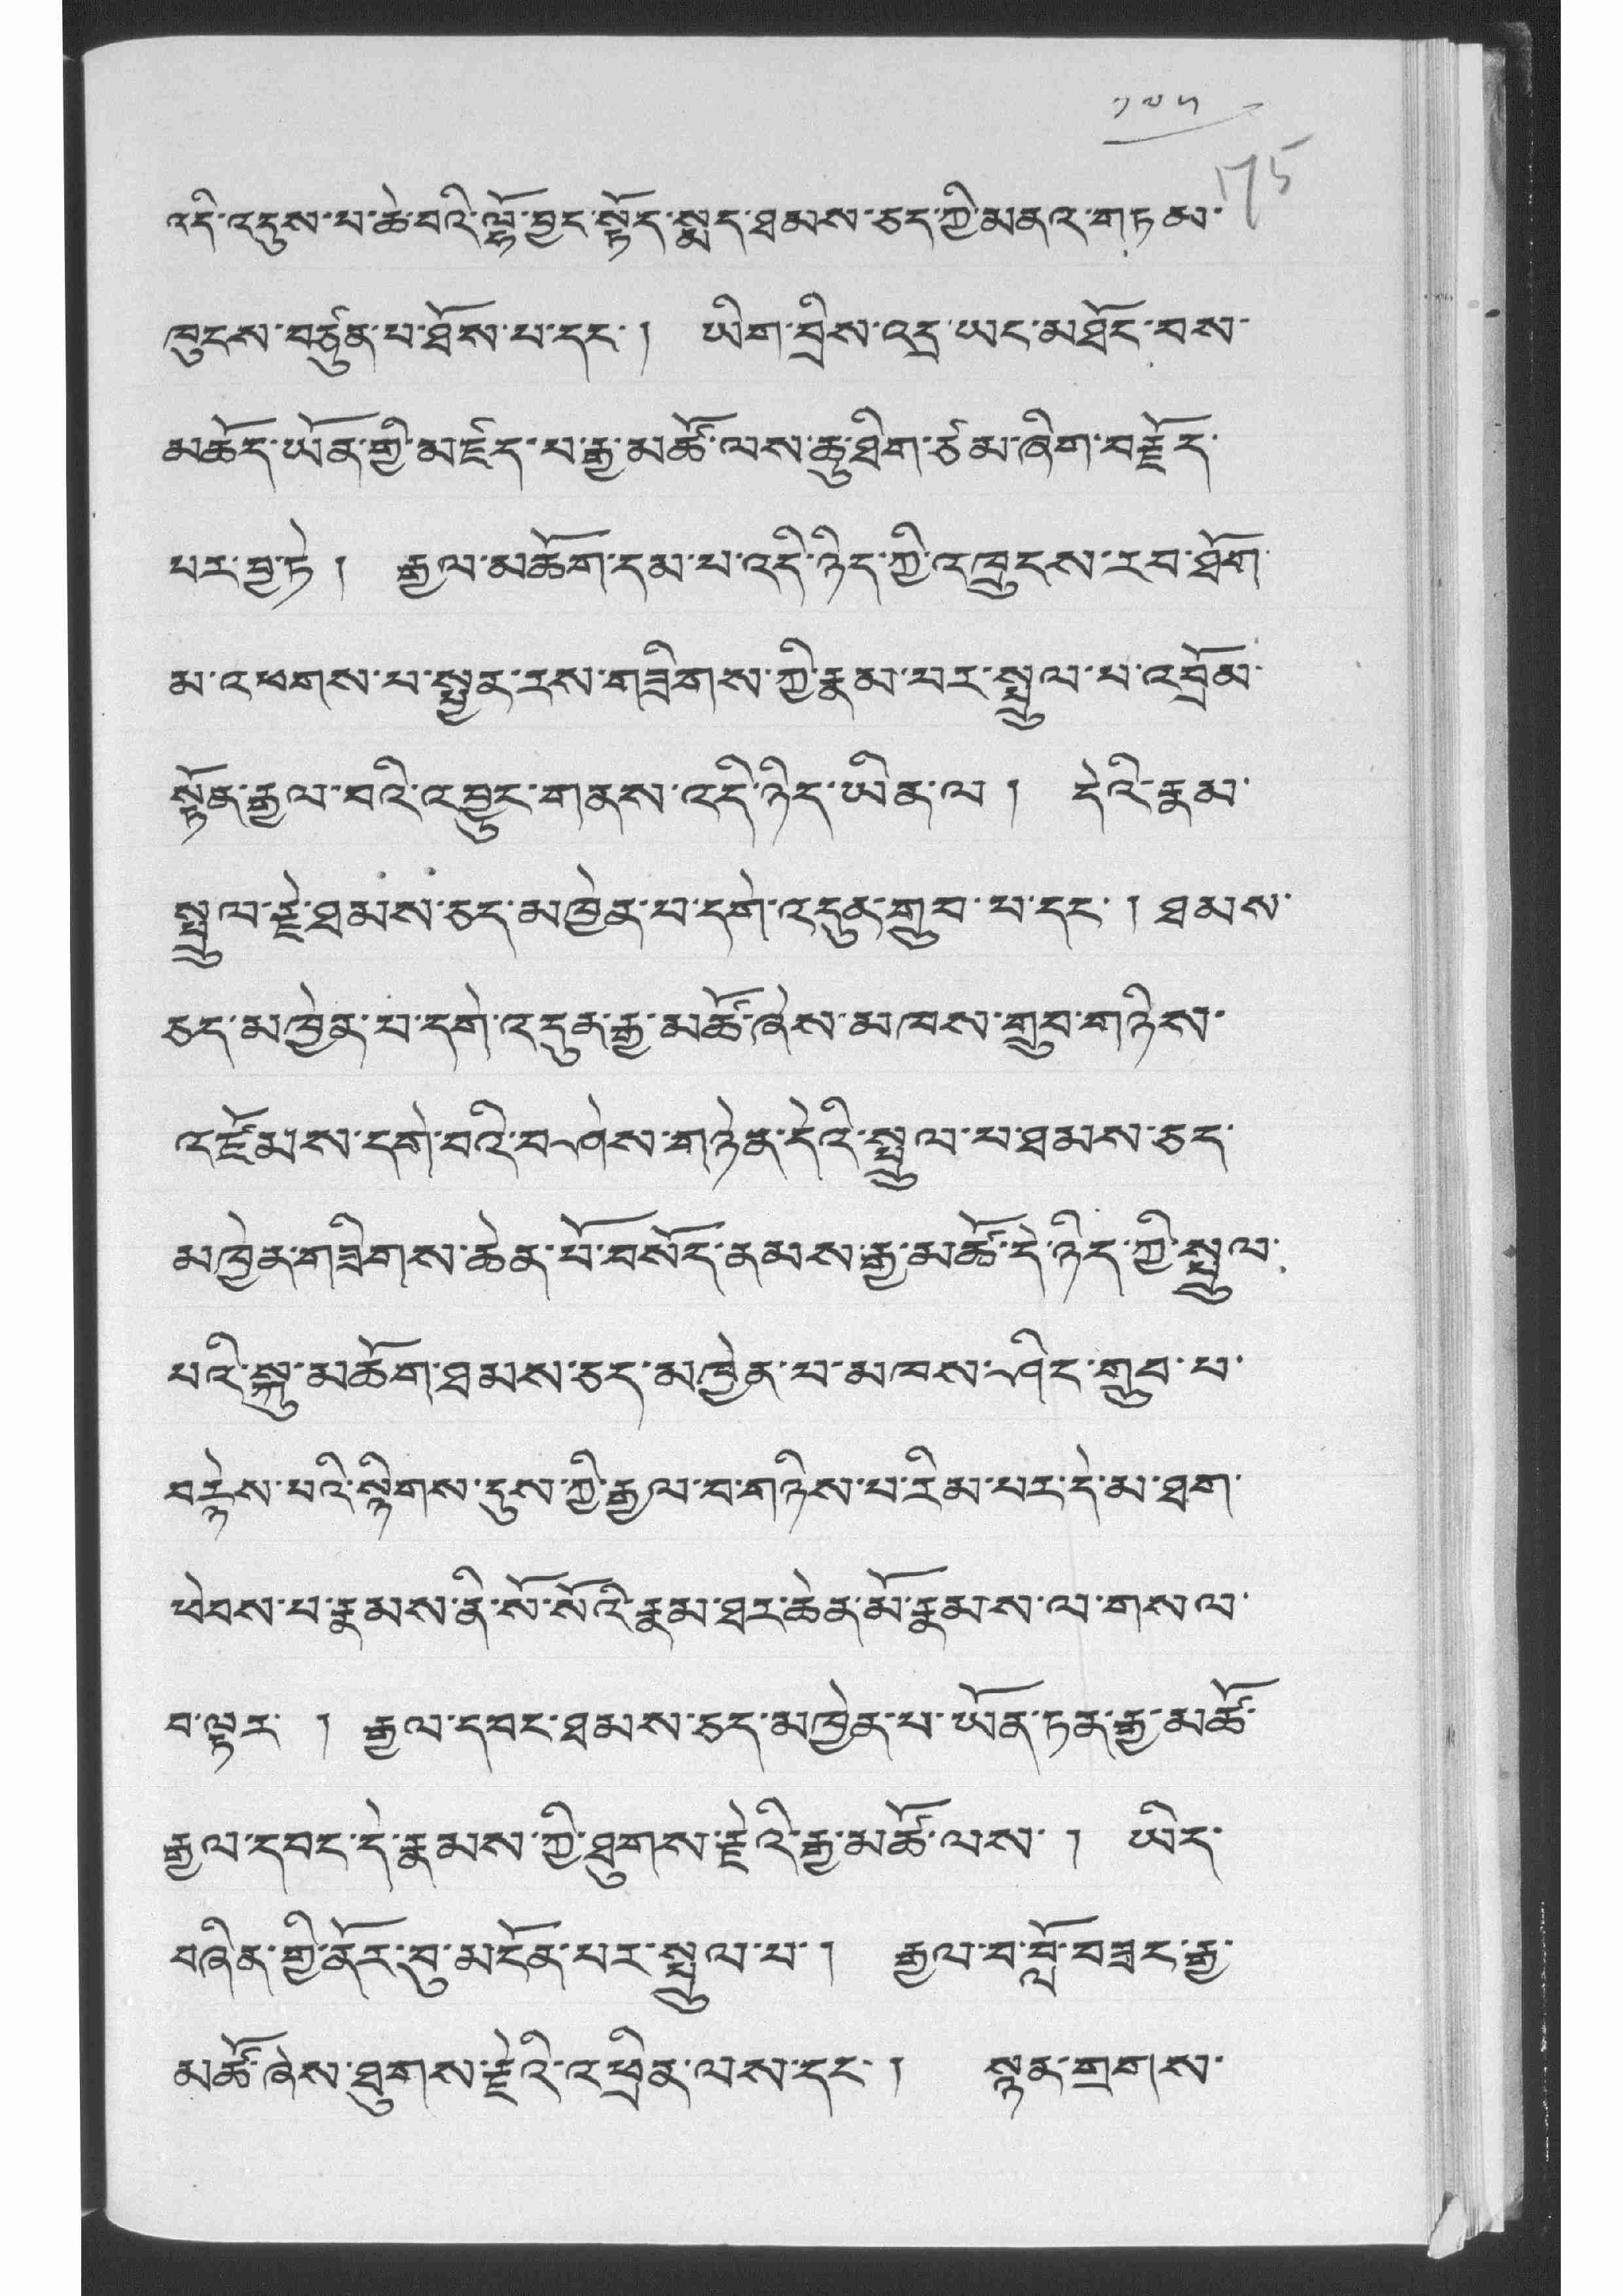 ༡༧༥
175
འདི་འདུས་པ་ཆེ་བའི་ལྷོ་བྱང་སྟོད་སྨད་ཐམས་ཅད་ཀྱི་མནའ་གཏམ་
ཁུངས་བཙུན་པ་ཐོས་པ་དང་། ཡིག་བྲིས་འདྲ་ཡང་མཐོང་བས་
མཆོད་ཡོན་གྱི་མཛོད་པ་རྒྱ་མཚོ་ལས་ཆུ་ཐིག་ཙམ་ཞིག་བརྗོད་
པར་བྱ་ཏེ། རྒྱལ་མཆོག་དམ་པ་འདི་ཉིད་ཀྱི་འཁྲུངས་རབ་ཐོག་
མ་འཕགས་པ་སྤྱན་རས་གཟིགས་ཀྱི་རྣམ་པར་སྤྲུལ་པ་འབྲོམ་
སྟོན་རྒྱལ་བའི་འབྱུང་གནས་འདི་ཉིད་ཡིན་ལ། དེའི་རྣམ་
སྤྲུལ་རྗེ་ཐམས་ཅད་མཁྱེན་པ་དགེ་འདུན་གྲུབ་པ་དང་། ཐམས་
ཅད་མཁྱེན་པ་དགེ་འདུན་རྒྱ་མཚོ་ཞེས་མཁས་གྲུབ་གཉིས་
འཛོམས་དགེ་བའི་བཤེས་གཉེན་དེའི་སྤྲུལ་པ་ཐམས་ཅད་
མཁྱེན་གཟིགས་ཆེན་པོ་བསོད་ནམས་རྒྱ་མཚོ་དེ་ཉིད་ཀྱི་སྤྲུལ་
པའི་སྐུ་མཆོག་ཐམས་ཅད་མཁྱེན་པ་མཁས་ཤིང་གྲུབ་པ་
བརྙེས་པའི་སྙིགས་དུས་ཀྱི་རྒྱལ་བ་གཉིས་པ་རིམ་པར་དེ་མ་ཐག་
ཕེབས་པ་རྣམས་ནི་སོ་སོའི་རྣམ་ཐར་ཆེན་མོ་རྣམས་ལ་གསལ་
བ་ལྟར། རྒྱལ་དབང་ཐམས་ཅད་མཁྱེན་པ་ཡོན་ཏན་རྒྱ་མཚོ་
རྒྱལ་དབང་དེ་རྣམས་ཀྱི་ཐུགས་རྗེའི་རྒྱ་མཚོ་ལས་། ཡིད་
བཞིན་གྱི་ནོར་བུ་མངོན་པར་སྤྲུལ་པ་། རྒྱལ་བ་བློ་བཟང་རྒྱ་
མཚོ་ཞེས་ཐུགས་རྗེའི་འཕྲིན་ལས་དང་། སྙན་གྲགས་